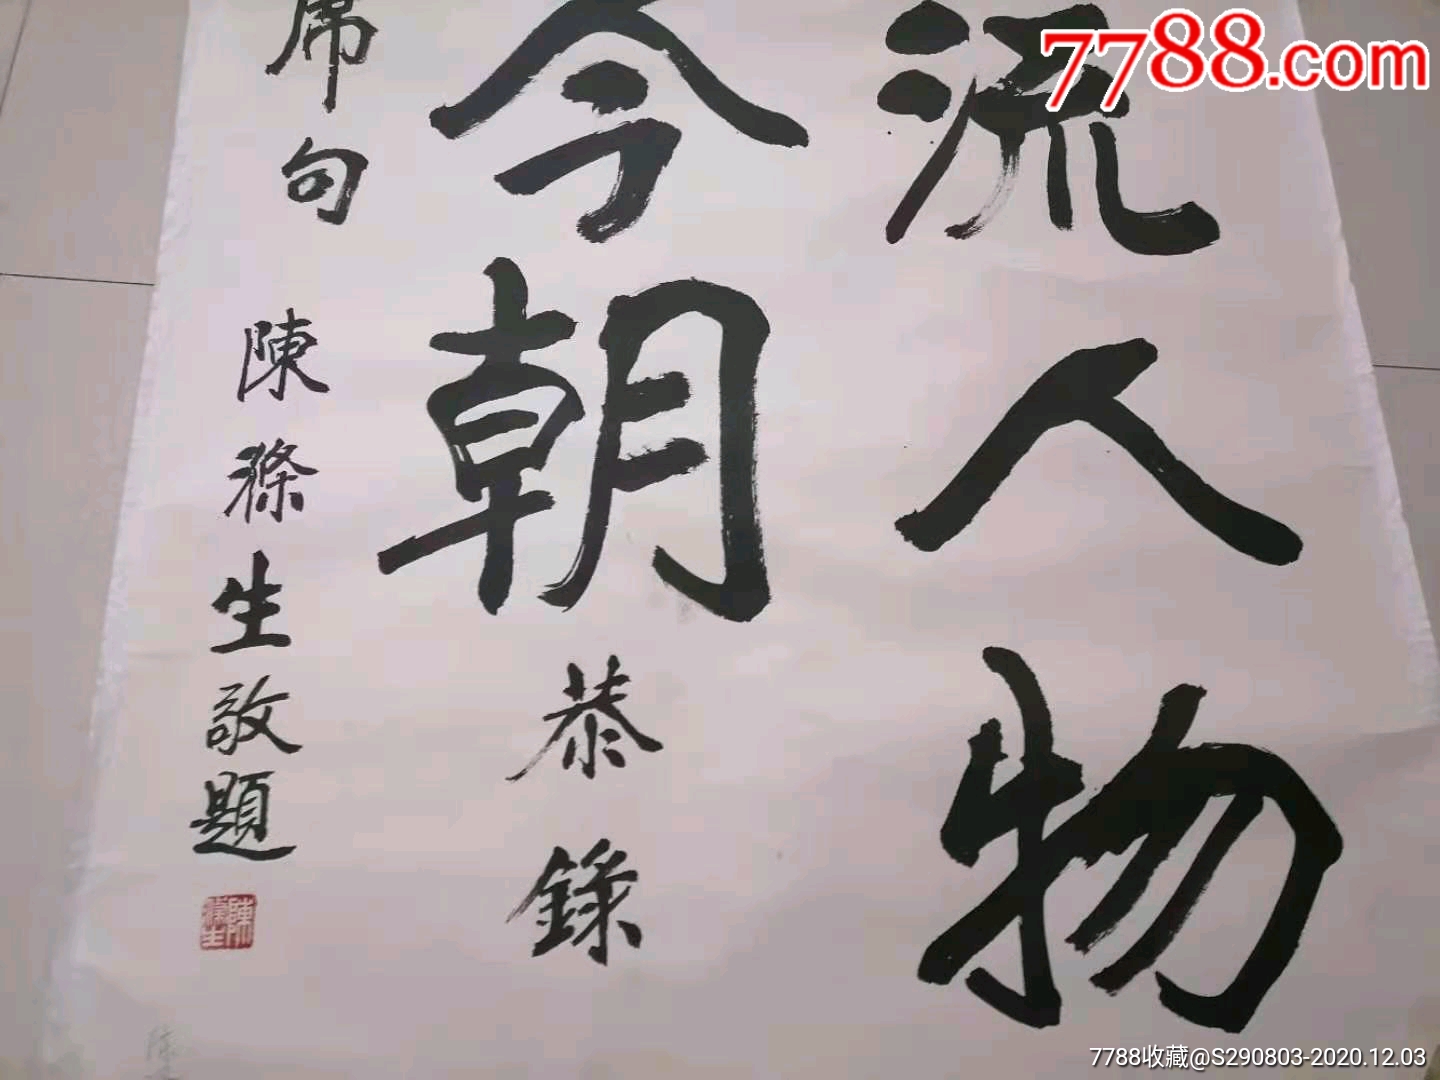 7788.com
流人物
今朝
恭錄
席句
陳滌生敬題
陳滌生
7788收藏@S290803-2020.12.03